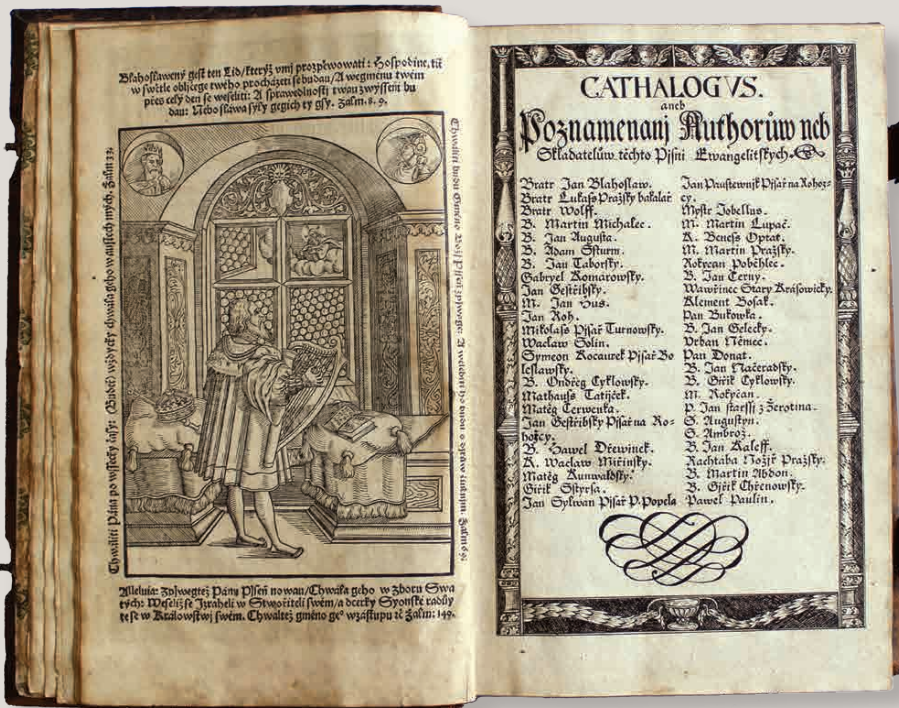 Blahosławený gest ten Lid/kterýž vmj prozpěwowati: Hospodine, tiť
w swětle obličege twého procházeti se budau/A wegménu twém
přes celý den se weseliti: A sprawedlnostj twau zwysseni bu
dau: Nebo sláwa sýly gegich ty gsy. Žalm. 8. 9.
Chwáliti Pána po wssecky časy: (Budeť) wždycky chwála geho w austech mých. Žalm 33.
Chwáliti budu Gméno Božj Pjsnj
Alleluia: Zpjwegtež Pánu Pjseň nowau/Chwála geho w zboru Swa
tých: Weseliž se Izraheli w Stwořiteli swém/a dcerky Syonské raduy
te se w Králowstwj swém. Chwaltež gméno geo w zástupu ꝛč Žalm: 149.
CATHALOGVS.
aneb
Poznamenanj Authorůw neb
Skladatelůw těchto Pjsni Ewangelitských.
Bratr Jan Blahoslaw.
Bratr Lukass Pražský bakalař
Bratr Wolff.
B. Martin Michalec.
B. Jan Augusta.
B. Adam Ssturm.
B. Jan Taborský.
Gabryel Komárowský.
Jan Gestřibský.
M. Jan Hus.
Jan Roh.
Mikoláss Pjsař Turnowský.
Wáclaw Solin.
Symeon Kocaurek Pjsař Bo
leslawský.
B. Ondřeg Cyklowský.
Mathauss Tatijček.
Matěg Čerwenka.
Jan Gestřibský Pjsař na Ro-
hozcy.
B. Hawel Dřewinek.
K. Waclaw Miřinský.
Matěg Kunwaldský.
Giřik Sstyrsa.
Jan Sylwan Pjsař P. Popela
Jan Paustewnjk Pjsař na Rohoz-
cy.
Mystr Jobellus.
M. Martin Lupač.
K. Beness Optat.
M. Martin Pražský.
Rokycan Poběhlec.
B. Jan Černy.
Wawřinec Stary Krasowický.
Klement Bosak.
Pan Bukowka.
B. Jan Gelecky.
Vrban Němec.
Pan Donat.
B. Jan Načeradský.
B. Giřik Cyklowský.
M. Rokycan.
P. Jan starssj z Žerotina.
S. Augustyn.
S. Ambrož.
B. Jan Kaleff.
Rachtaba Nožjř Pražský.
B. Martin Abdon.
B. Giřik Chřenowský.
Pawel Paulin.